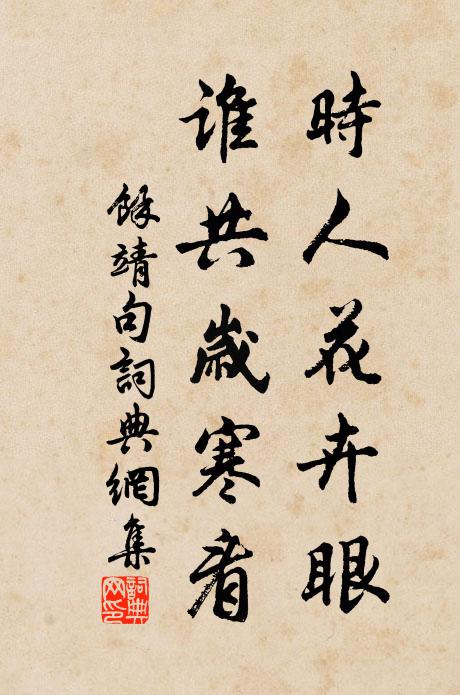 時人花卉眼
誰共歲寒看
餘靖句詞典網集
詞典網印